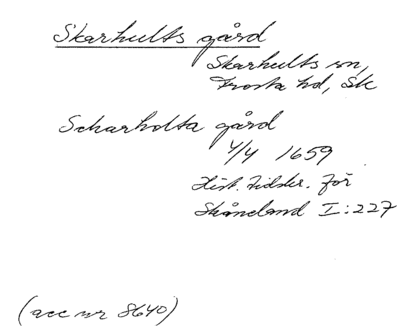 Skarhults gård
Skarhults sn,
Frosta hd, Sk
Scharholta gård
4/4 1659
Hist. tidskr. för
Skåneland I:227
(acc nr 8640)